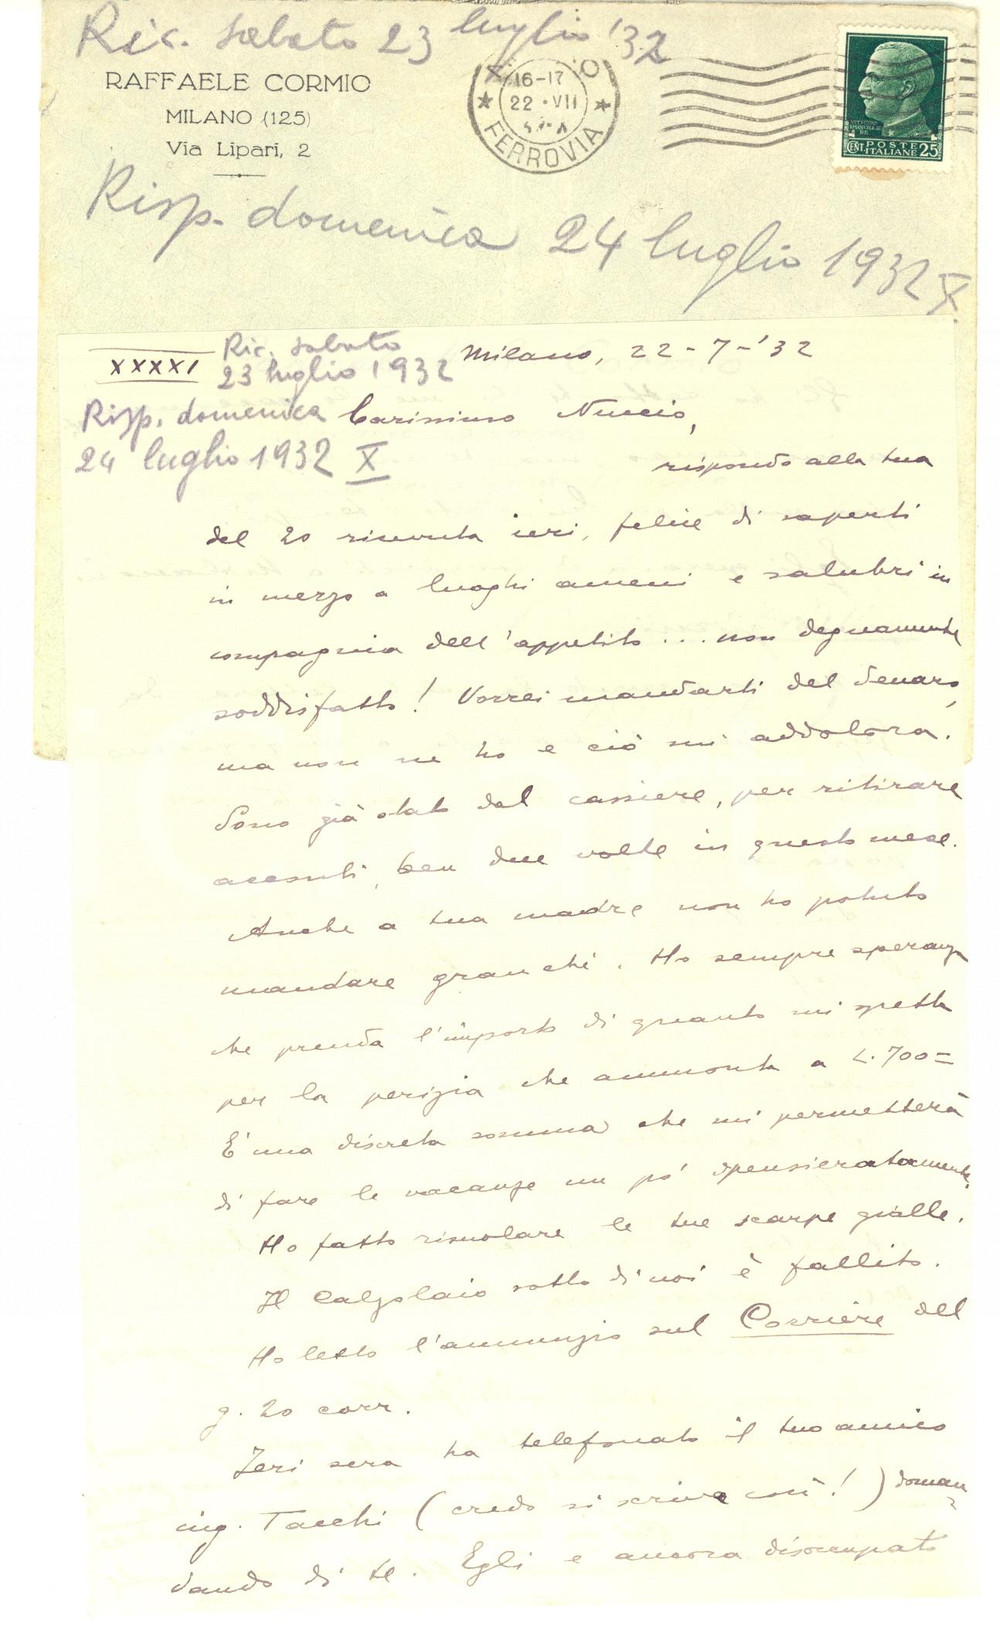 Ric. sabato 23 luglio '32
RAFFAELE CORMIO
MILANO (125)
Via Lipari, 2
16-17
22 · VII
FERROVIA
POSTE
ITALIANE
CENT. 25
Risp. domenica 24 luglio 1932 X.
XXXXI
Ric. sabato
23 luglio 1932
Milano, 22-7-'32
Risp. domenica
24 luglio 1932 X
Carissimo Nuccio,
rispondo alla tua
del 20 ricevuta ieri, felice di saperti
in mezzo a luoghi ameni e salubri in
compagnia dell'appetito ... non degnamente
soddisfatto! Vorrei mandarti del denaro,
ma non ne ho e ciò mi addolora.
Sono già stato dal cassiere, per ritirare
acconti, ben due volte in questo mese.
Anche a tua madre non ho potuto
mandare granché. Ho sempre speranza
che prenda l'importo di quanto mi spetta
per la perizia che ammonta a L. 700=
E' una discreta somma che mi permetterà
di fare le vacanze un pò spensieratamente.
Ho fatto risuolare le tue scarpe gialle.
Il Calzolaio sotto di noi è fallito.
Ho letto l'annunzio sul Corriere del
g. 20 corr.
Ieri sera ha telefonato il tuo amico
ing. Tacchi (credo si scriva così!) doman-
dando di te. Egli è ancora disoccupato